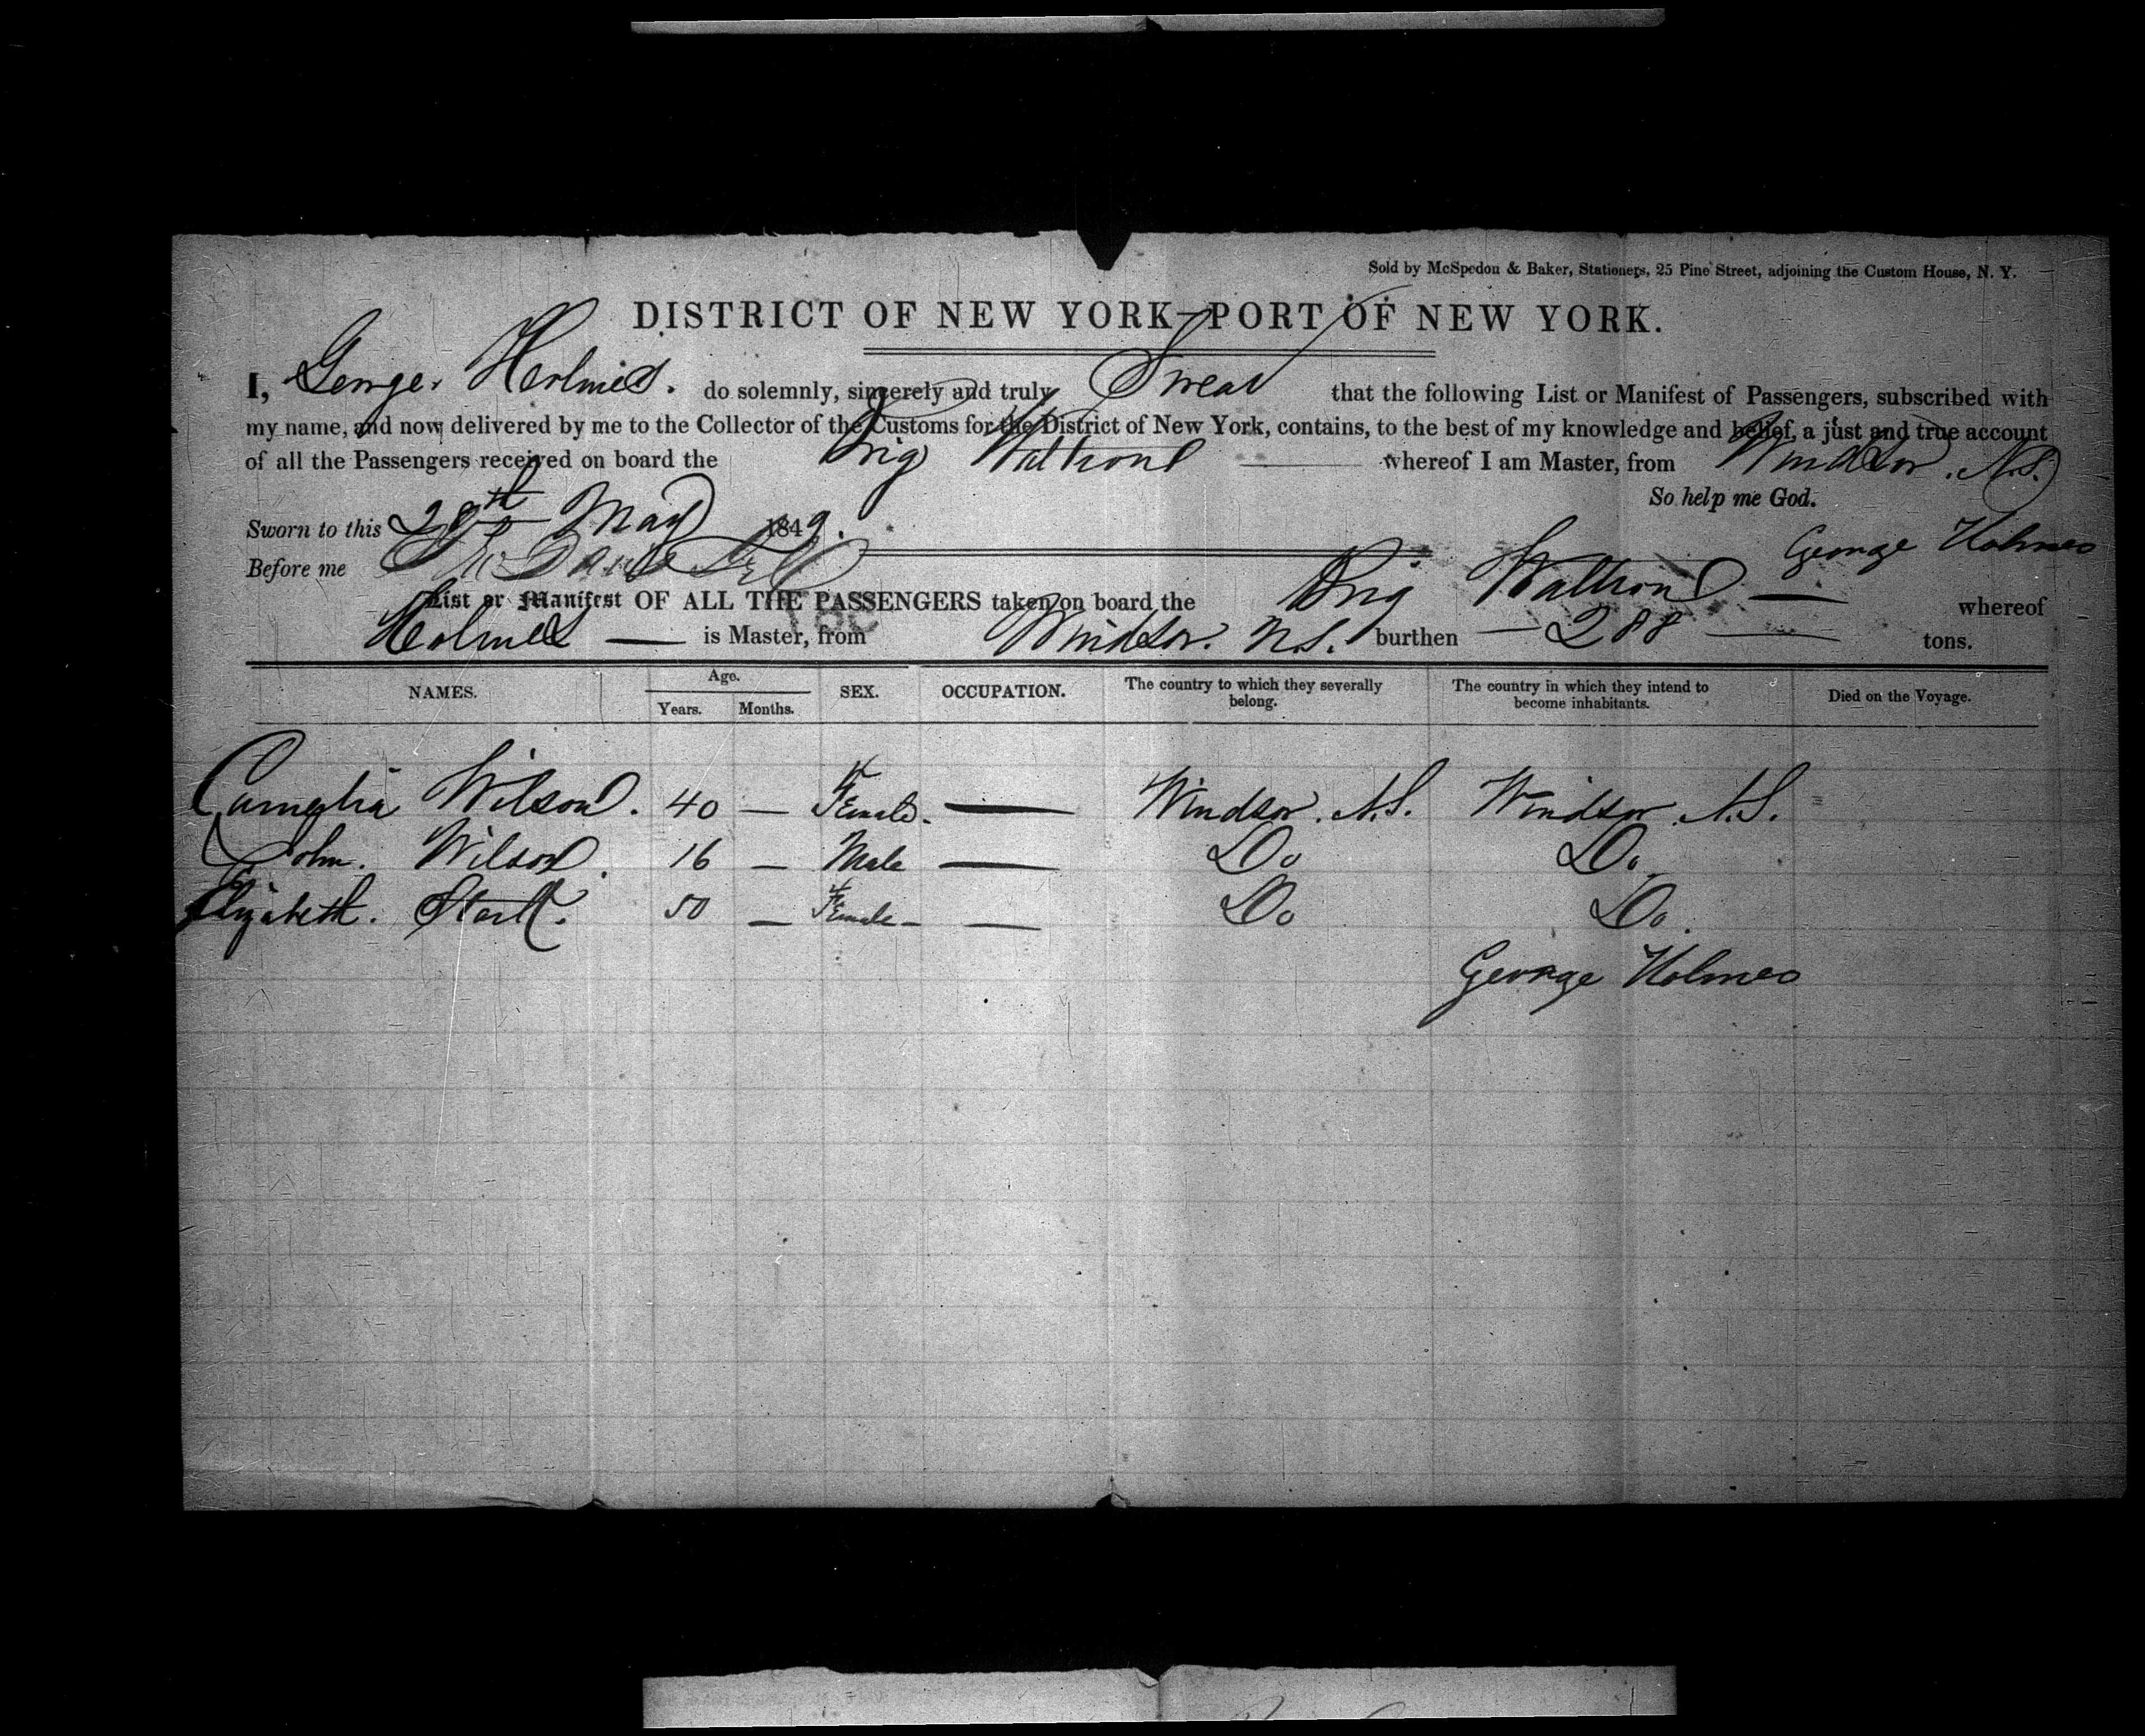 Sold by McSpedon & Baker, Stationers, 25 Pine Street, adjoining the Custom House, N. Y.
DISTRICT OF NEW YORK—PORT OF NEW YORK.
I, George Holmes. do solemnly, sincerely and truly Swear that the following List or Manifest of Passengers, subscribed with
my name, and now delivered by me to the Collector of the Customs for the District of New York, contains, to the best of my knowledge and belief, a just and true account
of all the Passengers received on board the Brig Waltron whereof I am Master, from Windsor. N.S.
So help me God.
Sworn to this 28th May 1849.
George Holmes
Before me
List or Manifest OF ALL THE PASSENGERS taken on board the Brig Waltron — whereof
Holmes — is Master, from Windsor. N.S. burthen — 288 — tons.
NAMES. Age. Years. Months. SEX. OCCUPATION. The country to which they severally belong. The country in which they intend to become inhabitants. Died on the Voyage.
Wilson. 40 — Female. — Windsor. N.S. Windsor. N.S.
John. Wilson. 16 — Male — Do Do.
Elizabeth. 50 — Female — — Do Do.
George Holmes